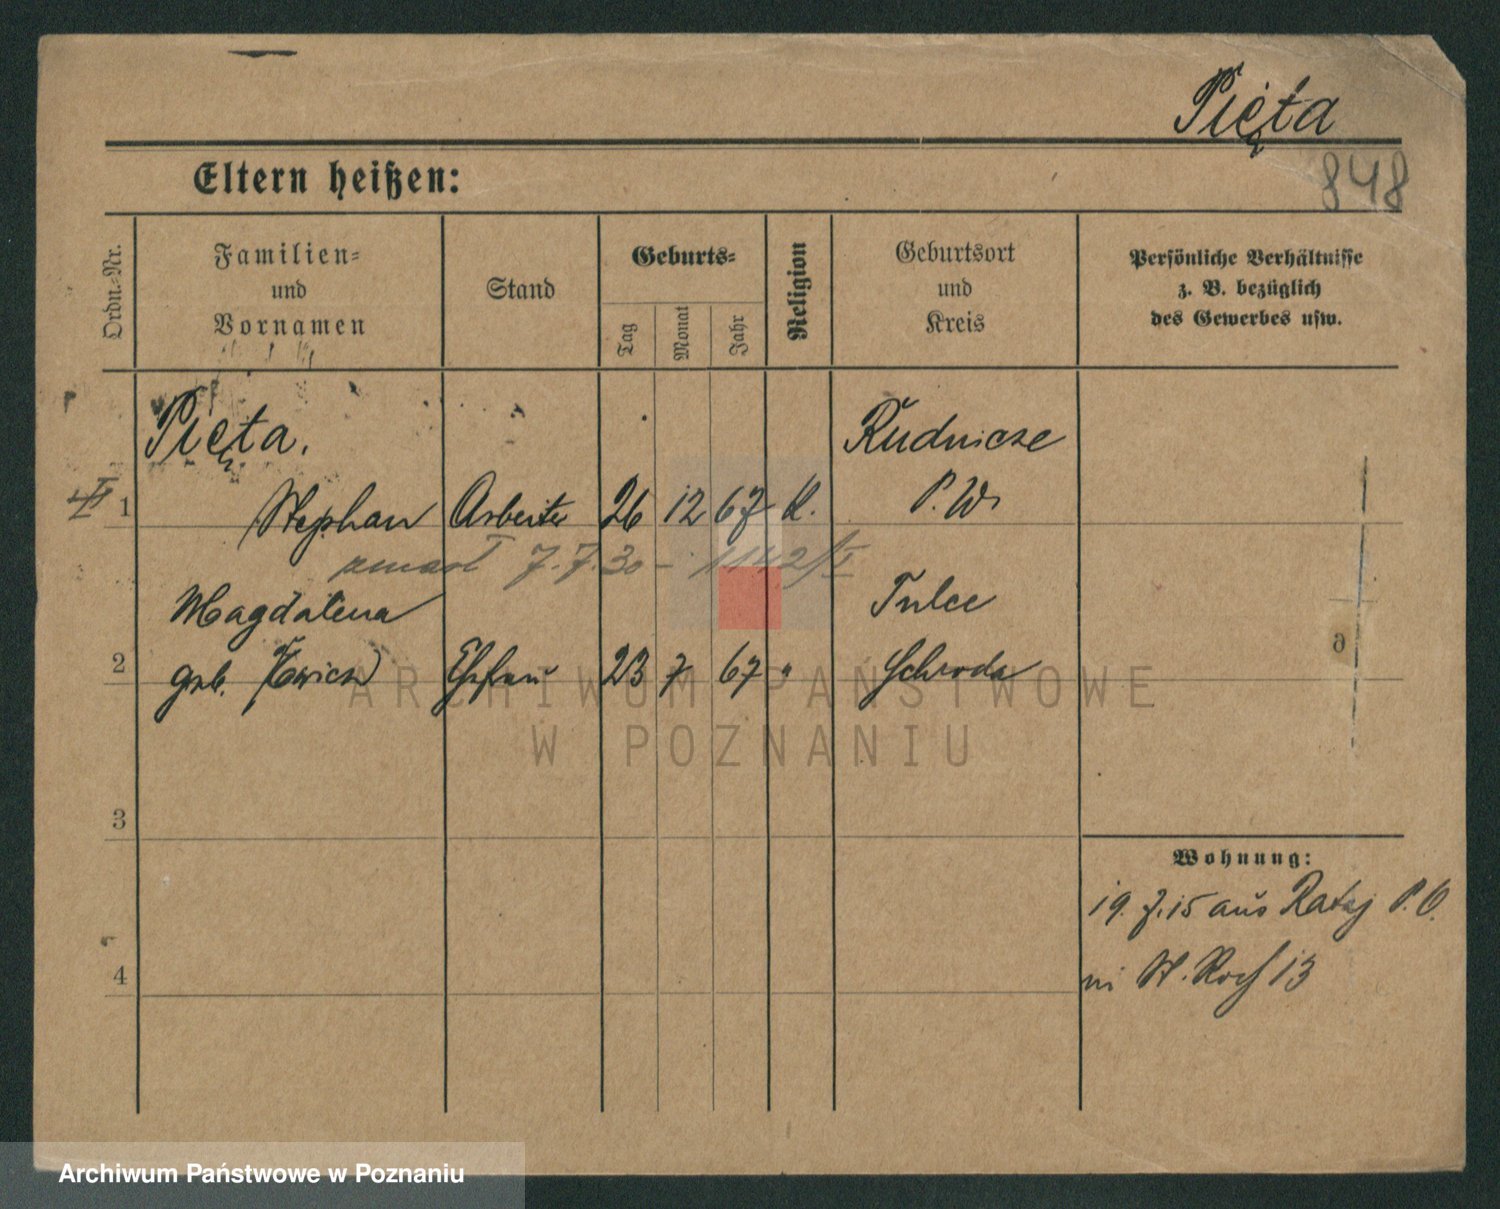 Pięta
848
Eltern heißen:
Ordn.-Nr.
Familien- und Vornamen
Stand
Geburts-
Tag
Monat
Jahr
Religion
Geburtsort und Kreis
Persönliche Verhältnisse
z. B. bezüglich
des Gewerbes usw.
Pięta.
Rudnicze
1 Stephan Arbeiter 26 12 67 k. P. W.
zmarł 7.7.30 - 1142/I
Magdalena Tulce
2 geb. Ehefrau 23 7 67 " Schroda
6
ARCHIWUM PAŃSTWOWE
W POZNANIU
3
Wohnung:
19.7.15 aus Rataj P. O.
4
in St. Roch 13
Archiwum Państwowe w Poznaniu